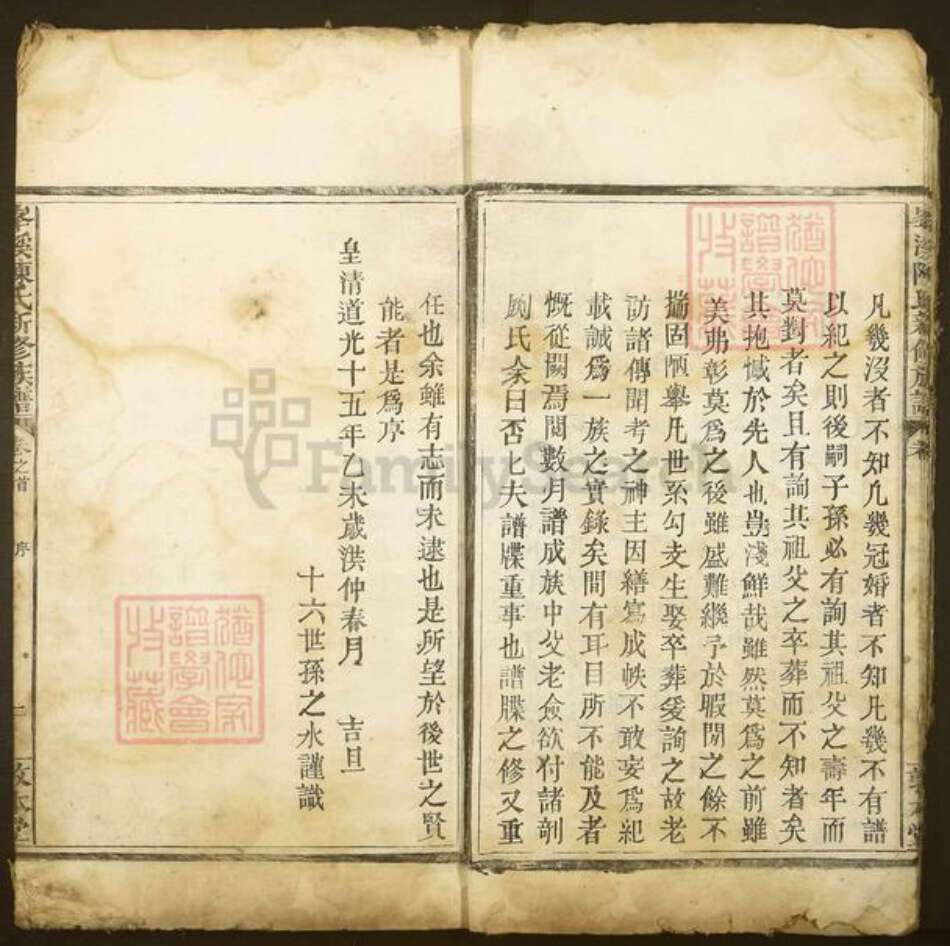 凡幾沒者不知凡幾冠婚者不知凡幾不有譜
以紀之則後嗣子孫必有詢其祖父之壽年而
莫對者矣且有詢其祖父之卒葬而不知者矣
其抱憾於先人也豈淺鮮哉雖然莫爲之前雖
美弗彰莫爲之後雖盛難繼予於暇閒之餘不
揣固陋舉凡世系勾支生娶卒葬爰詢之故老
訪諸傳聞考之神主因繕寫成帙不敢妄爲紀
載誠爲一族之實錄矣間有耳目所不能及者
慨從闕焉閱數月譜成族中父老僉欲付諸剞
劂氏余曰否匕夫譜牒重事也譜牒之修又重
任也余雖有志而未逮也是所望於後世之賢
能者是爲序
皇清道光十五年乙未歲洪仲春月 吉旦
十六世孫之水謹識
陳氏新修族譜 卷之首 序 一 敦本堂
FamilySearch